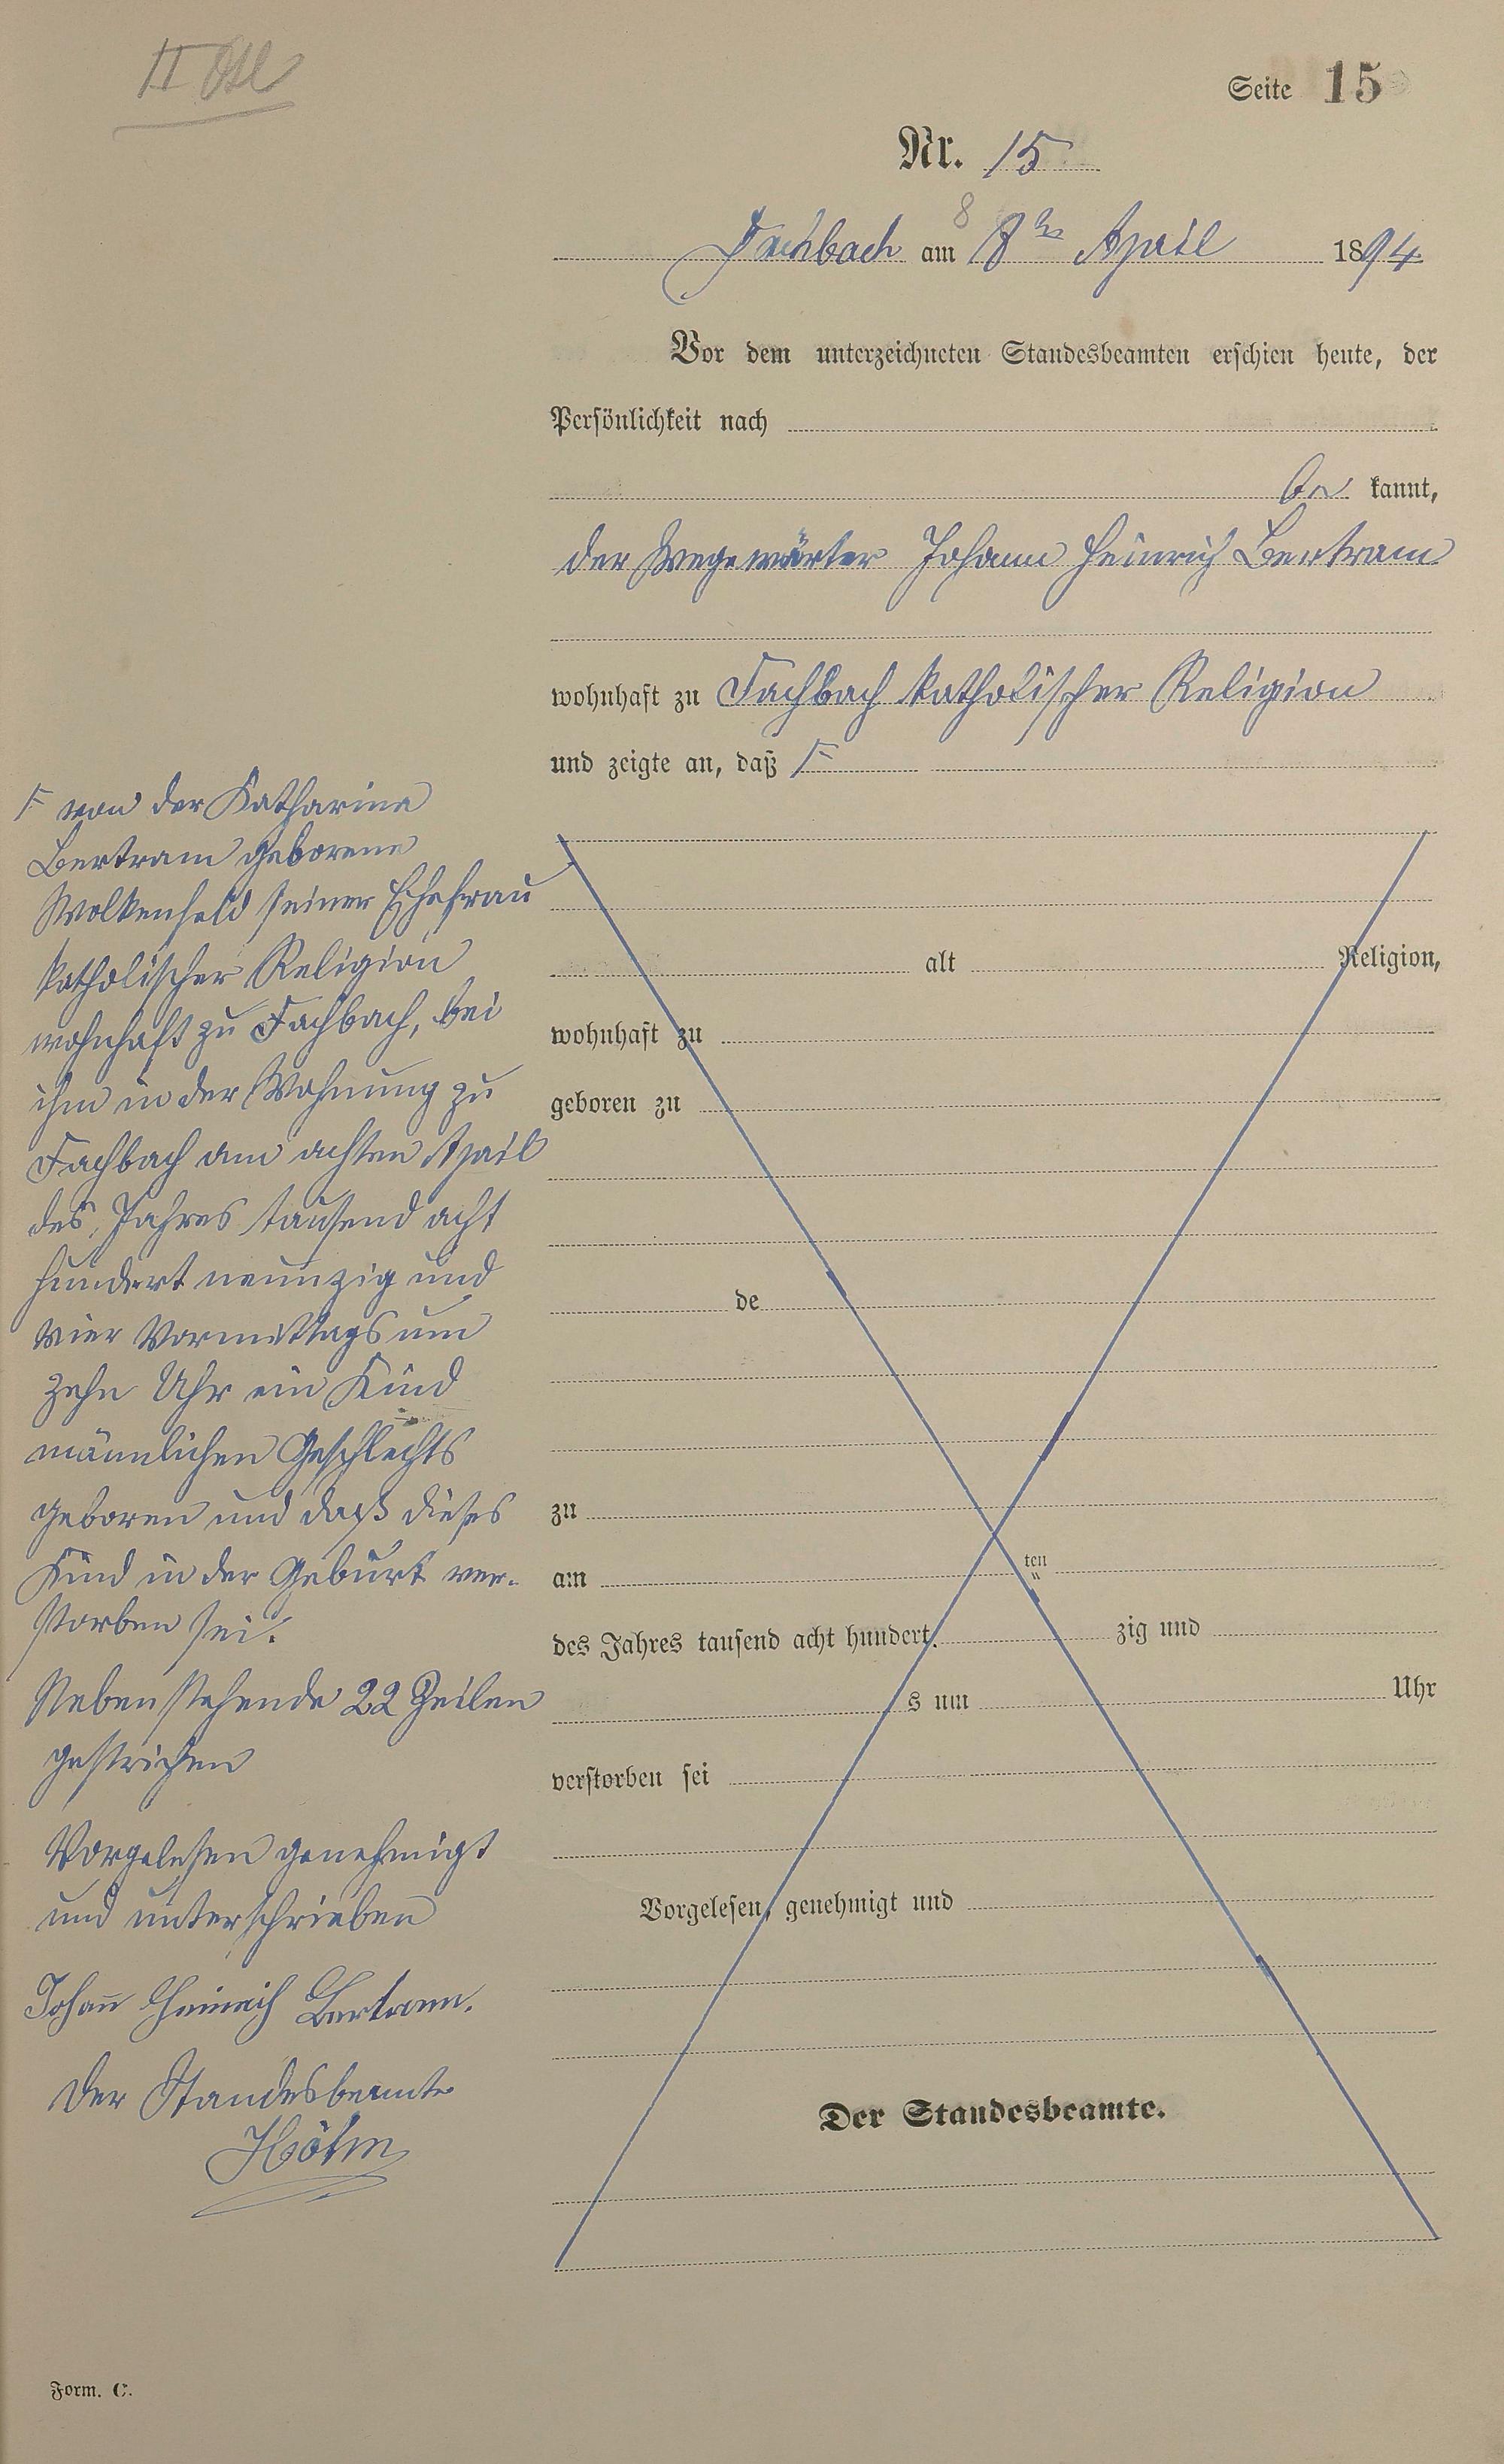 II
Seite 15
Nr. 15
8
Fachbach am 8ten April 1894
Vor dem unterzeichneten Standesbeamten erschien heute, der
Persönlichkeit nach
be kannt,
der Wegewärter Johann Heinrich Bertram
wohnhaft zu Fachbach katholischer Religion
und zeigte an, daß F
F von der Katharina
Bertram geborene
Wolkenfeld seiner Ehefrau
katholischer Religion
wohnhaft zu Fachbach, bei
ihm in der Wohnung zu
Fachbach am achten April
des Jahres tausend acht
hundert neunzig und
vier Vormittags um
zehn Uhr ein Kind
männlichen Geschlechts
geboren und daß dieses
Kind in der Geburt ver-
storben sei.
Nebenstehende 22 Zeilen
gestrichen
Vorgelesen genehmigt
und unterschrieben
Johann Heinrich Bertram.
Der Standesbeamte
alt Religion,
wohnhaft zu
geboren zu
de
zu
am ten
des Jahres tausend acht hundert zig und
s um Uhr
verstorben sei
Vorgelesen, genehmigt und
Der Standesbeamte.
Form. C.